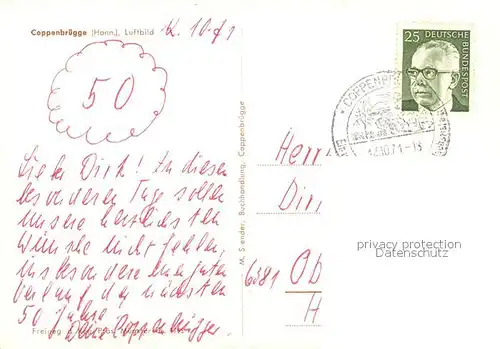 Coppenbrügge (Hann.), Luftbild
12.10.71
50
Lieber Dirk! In diesen
besonderen Tage sollen
unsere herzlichsten
Wünsche nicht fehlen,
insbesondere einen guten
Verlauf der nächsten
50 Jahre.
Deine Coppenbrügger.
M. Stender, Buchhandlung, Coppenbrügge
25 DEUTSCHE
BUNDESPOST
COPPENBR
12.10.71-18
Herr
Dir
6381 Ob
H
privacy protection
Datenschutz